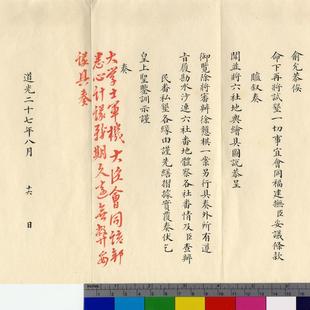 俞允恭俟
命下再將試墾一切事宜會同福建撫臣妥議條款
臚叙奏
聞並將六社地輿繪具圖說恭呈
御覽除將審辦徐戆棋一案另行具奏外所有遵
旨履勘水沙連六社番地體察各社番情及臣查辦
民番私墾各緣由謹先繕摺據實覆奏伏乞
皇上聖鑒訓示謹
奏
大學士軍機大臣會同該部
悉心計議務期久遠無弊妥
議具奏
道光二十七年八月 十六 日